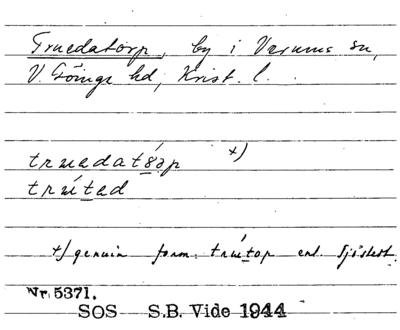 Truedatorp, by i Verums sn,
V. Göinge hd, Krist. l.
truedatǿrp +)
trútəd
+) genuin form: trútop enl. Sjöstedt.
Nr. 5371.
SOS S.B. Vide 1944